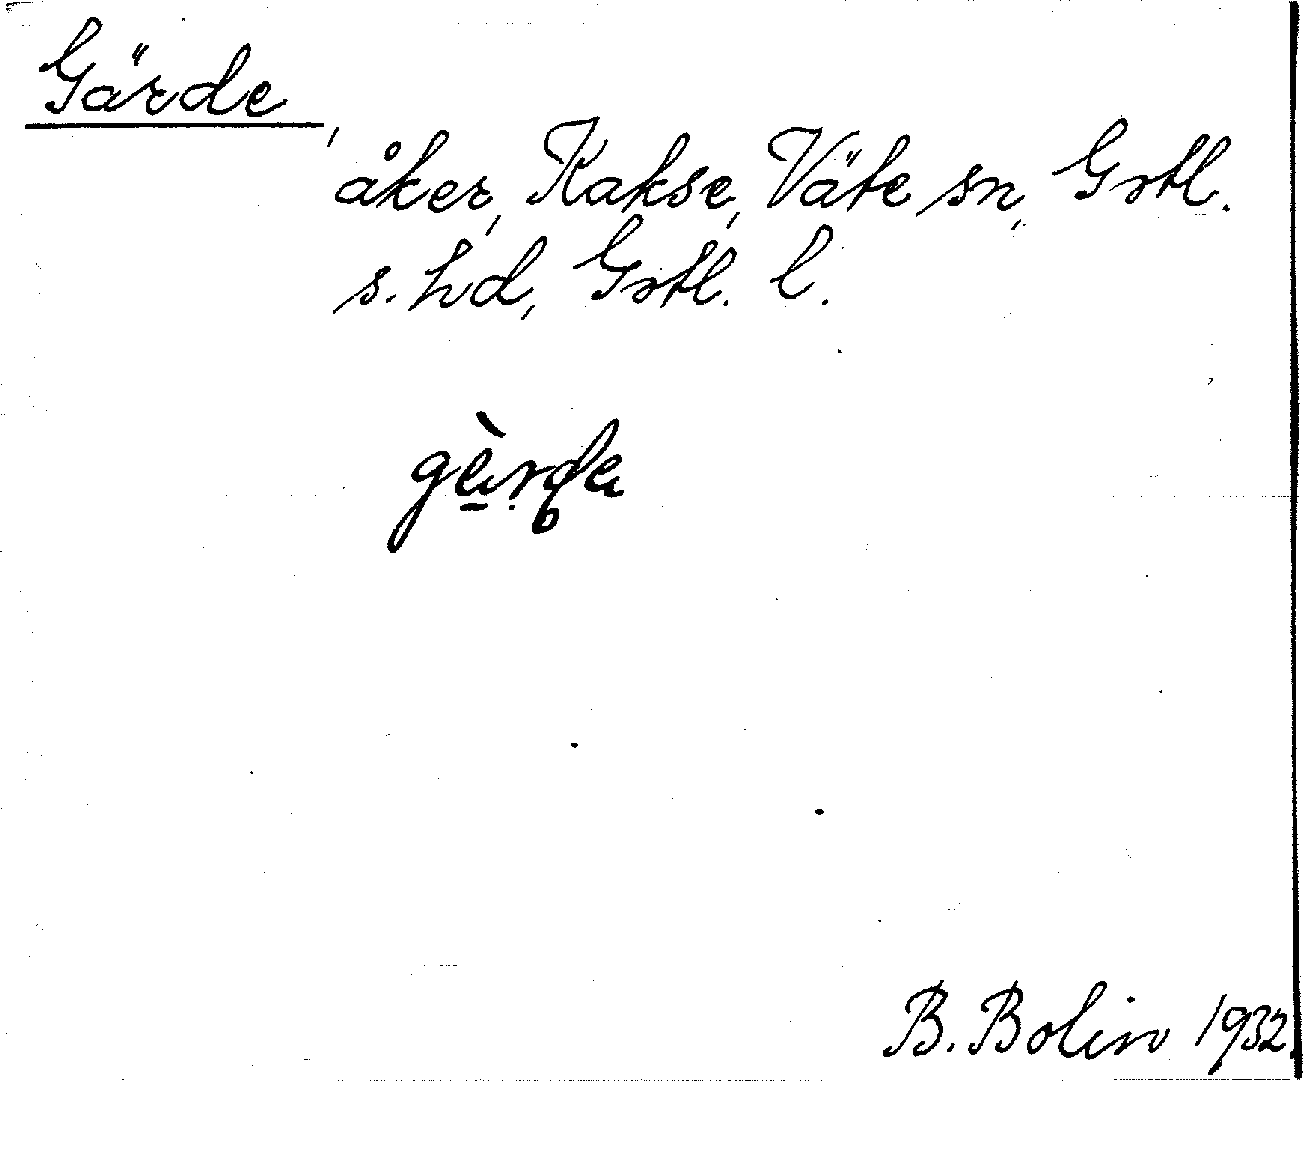 Gärde,
åker, Kakse, Väte sn, Grtl.
s. hd, Grtl. l.
gèrde
B. Bolin 1932.